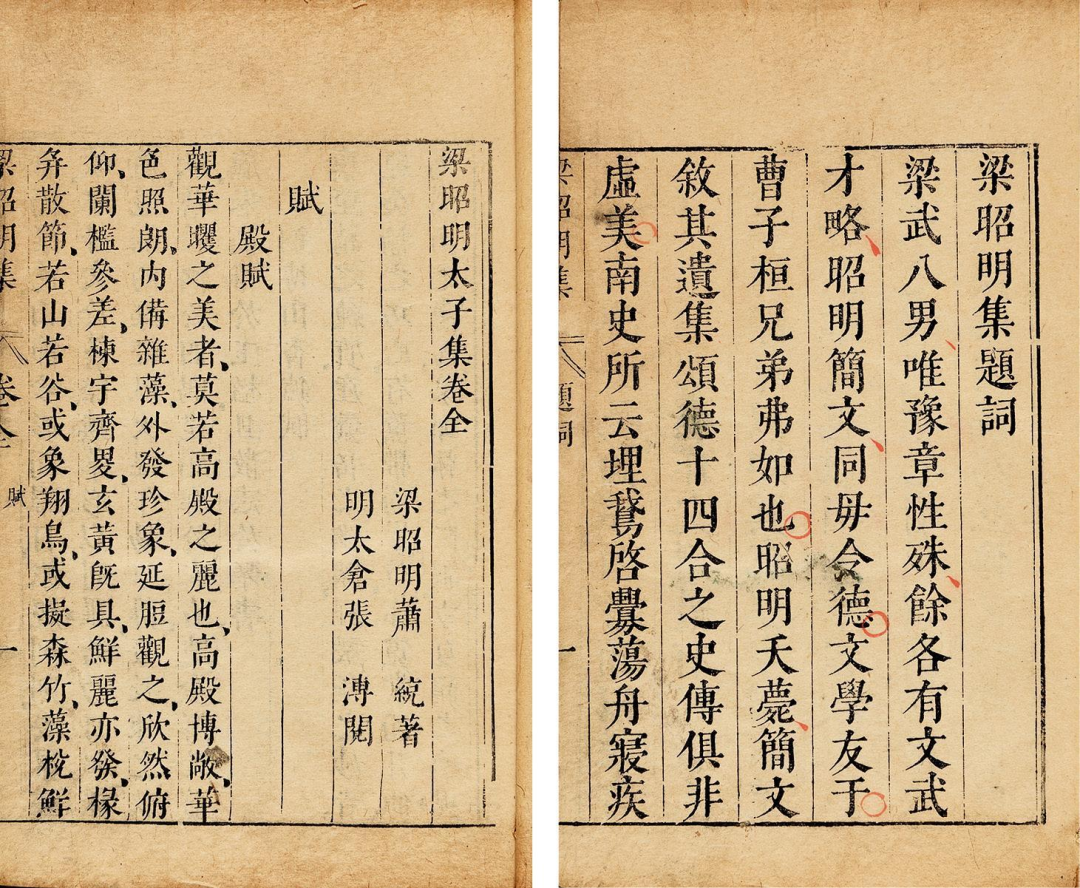 梁昭明集題詞
梁武八男唯豫章性殊餘各有文武
才略昭明簡文同母令德文學友于
曹子桓兄弟弗如也昭明夭薨簡文
敘其遺集頌德十四合之史傳俱非
虛美南史所云埋鵝啓釁蕩舟寢疾
梁昭明集 題詞 一
梁昭明太子集卷全
梁昭明蕭 統著
明太倉張 溥閱
賦
殿賦
觀華曤之美者莫若高殿之麗也高殿博敞華
色照朗内備雜藻外發珍象延脰觀之欣然俯
仰闌檻參差棟宇齊畟玄黃旣具鮮麗亦發椽
弁散節若山若谷或象翔鳥或擬森竹藻梲鮮
梁昭明集 卷全 賦 一